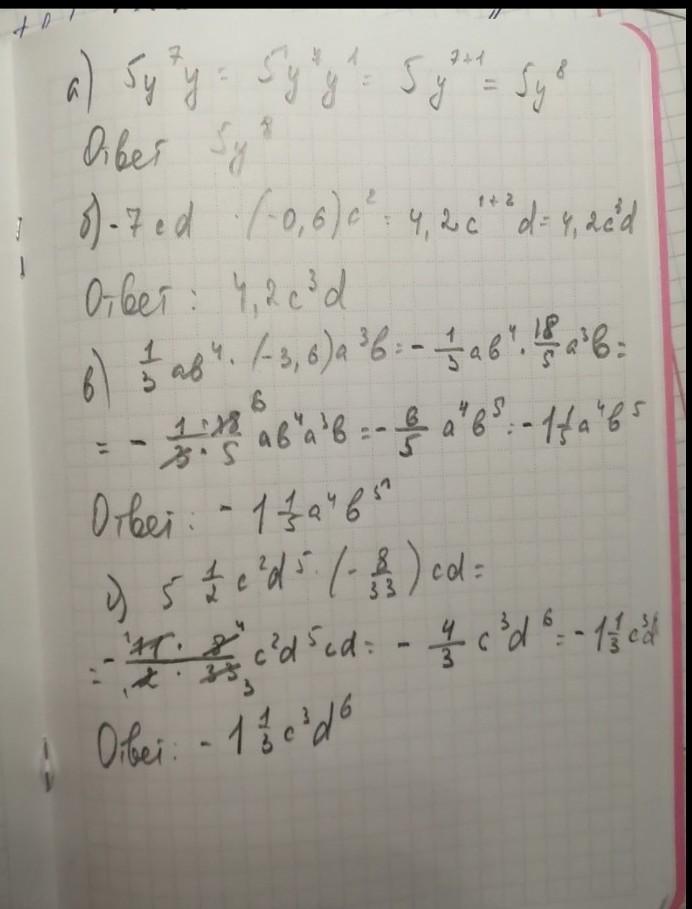 а) 5y⁷y = 5y⁷y¹ = 5y⁷⁺¹ = 5y⁸
Ответ 5y⁸
б) -7cd · (-0,6)c² = 4,2c¹⁺²d = 4,2c³d
Ответ: 4,2c³d
в) 1/3 ab⁴ · (-3,6)a³b = -1/3 ab⁴ · 18/5 a³b =
= - (1·18)/(3·5) 6 ab⁴a³b = -6/5 a⁴b⁵ = -1 1/5 a⁴b⁵
Ответ: -1 1/5 a⁴b⁵
г) 5 1/2 c²d⁵ · (-8/33)cd =
= - (11·8)/(2·33) c²d⁵cd = -4/3 c³d⁶ = -1 1/3 c³d⁶
Ответ: -1 1/3 c³d⁶